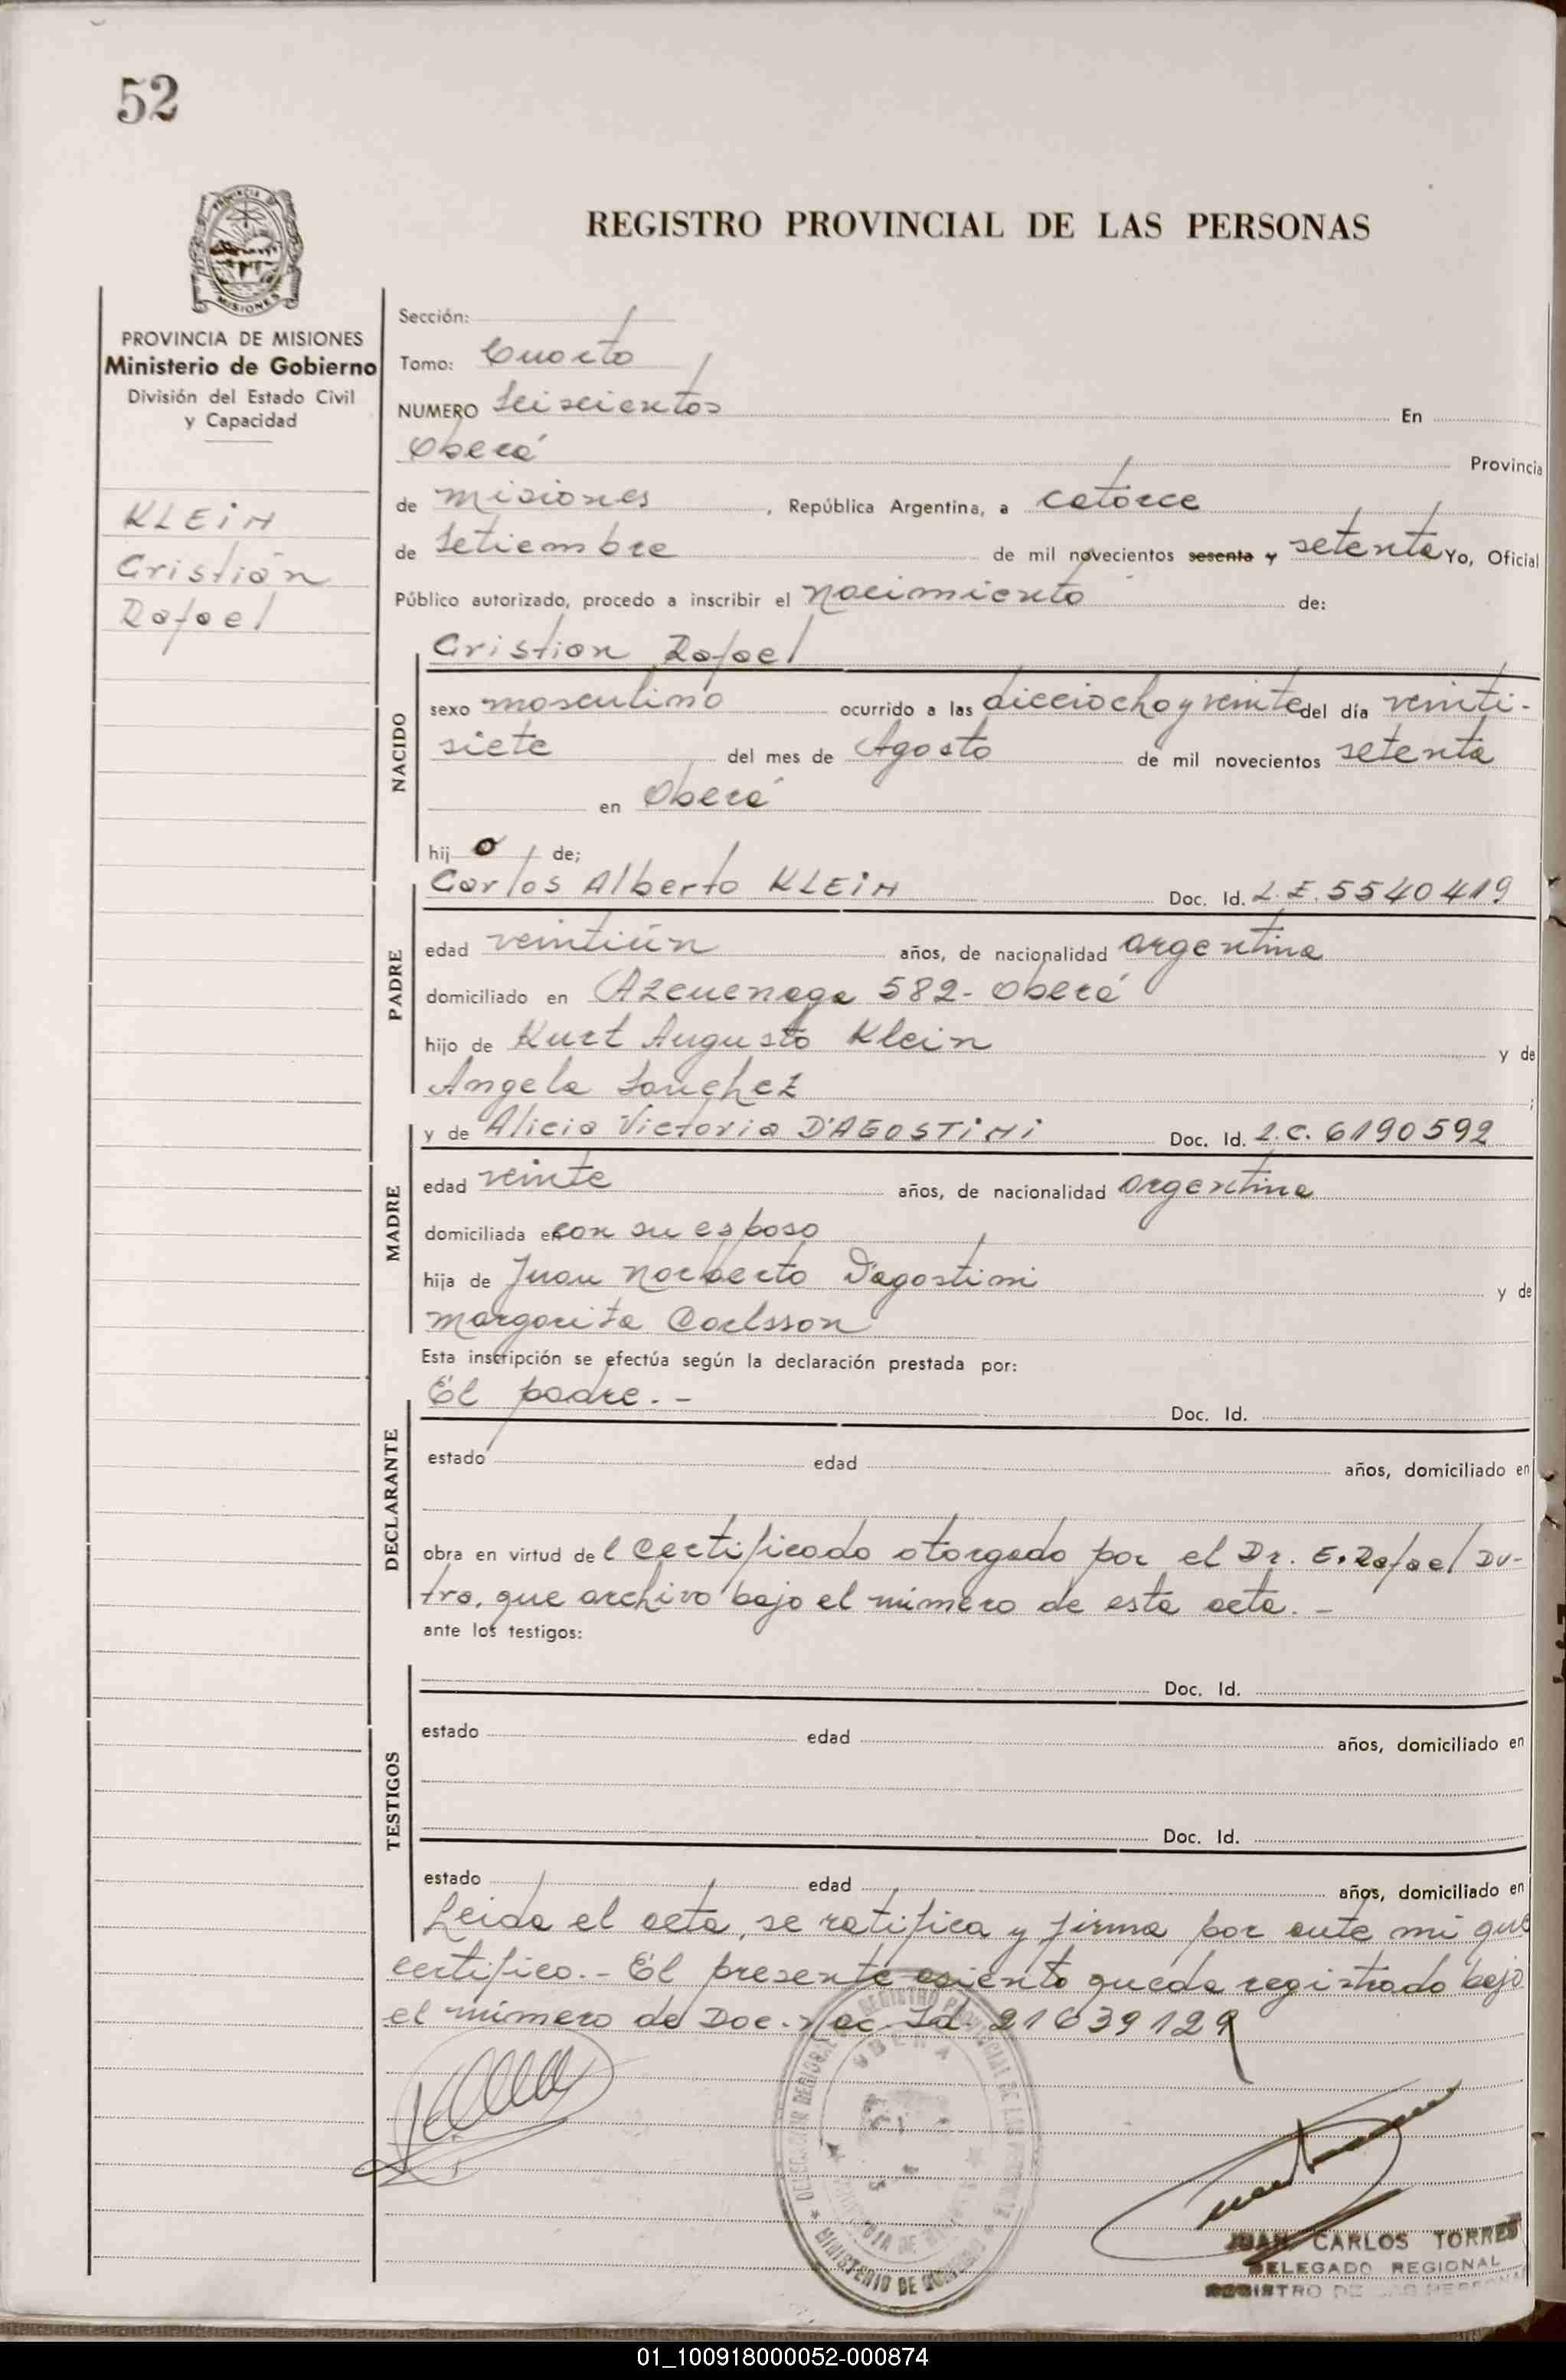 52
REGISTRO PROVINCIAL DE LAS PERSONAS
PROVINCIA DE MISIONES
Ministerio de Gobierno
División del Estado Civil
y Capacidad
KLEIN
Cristián
Rafael
Sección:
Tomo: Cuarto
NUMERO Seiscientos En
Oberá Provincia
de Misiones, República Argentina, a catorce
de Setiembre de mil novecientos sesenta y setenta Yo, Oficial
Público autorizado, procedo a inscribir el nacimiento de:
Cristian Rafael
NACIDO
sexo masculino ocurrido a las dieciocho y veinte del día veinti-
siete del mes de Agosto de mil novecientos setenta
en Oberá
hijo de;
PADRE
Carlos Alberto KLEIN Doc. Id. L.E. 5540419
edad veintiún años, de nacionalidad argentina
domiciliado en Azcuenaga 582- Oberá
hijo de Kurt Augusto Klein y de
Angela Sanchez ;
MADRE
y de Alicia Victoria D'AGOSTINI Doc. Id. L.C. 6190592
edad veinte años, de nacionalidad argentina
domiciliada en con su esposo
hija de Juan Norberto D'agostini y de
Margarita Carlsson
Esta inscripción se efectúa según la declaración prestada por:
DECLARANTE
El padre.- Doc. Id.
estado edad años, domiciliado en
obra en virtud del Certificado otorgado por el Dr. E. Rafael Du-
tra, que archivo bajo el número de esta acta.-
ante los testigos:
TESTIGOS
Doc. Id.
estado edad años, domiciliado en
Doc. Id.
estado edad años, domiciliado en
Leida el acta, se ratifica y firma por ante mi que
certifico.- El presente asiento queda registrado bajo
el número de Doc. Nac. Id. 21639129
DELEGACION REGIONAL REGISTRO PROVINCIAL DE LAS PERSONAS
OBERA
MINISTERIO DE GOBIERNO
JUAN CARLOS TORRES
DELEGADO REGIONAL
REGISTRO DE LAS PERSONAS
01_100918000052-000874